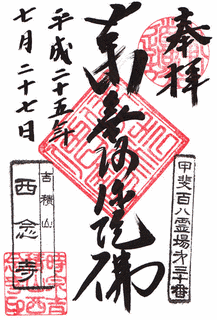 奉拝
甲斐百八霊場第三十番
南無阿弥陀佛
平成二十五年
七月二十七日
吉積山
西念寺